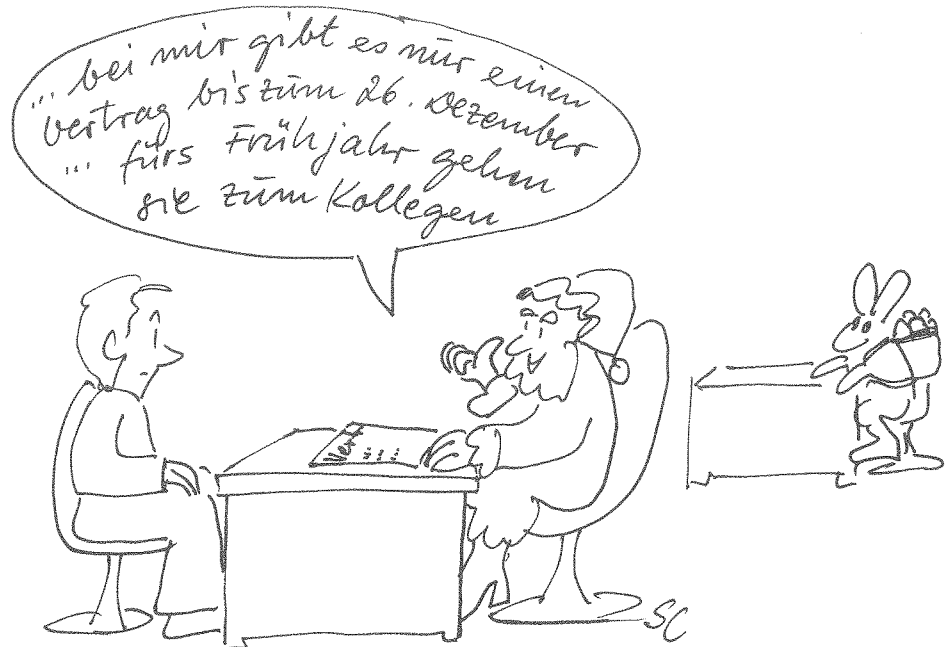 ... bei mir gibt es nur einen
Vertrag bis zum 26. Dezember
... fürs Frühjahr gehen
sie zum Kollegen
Vert
SC